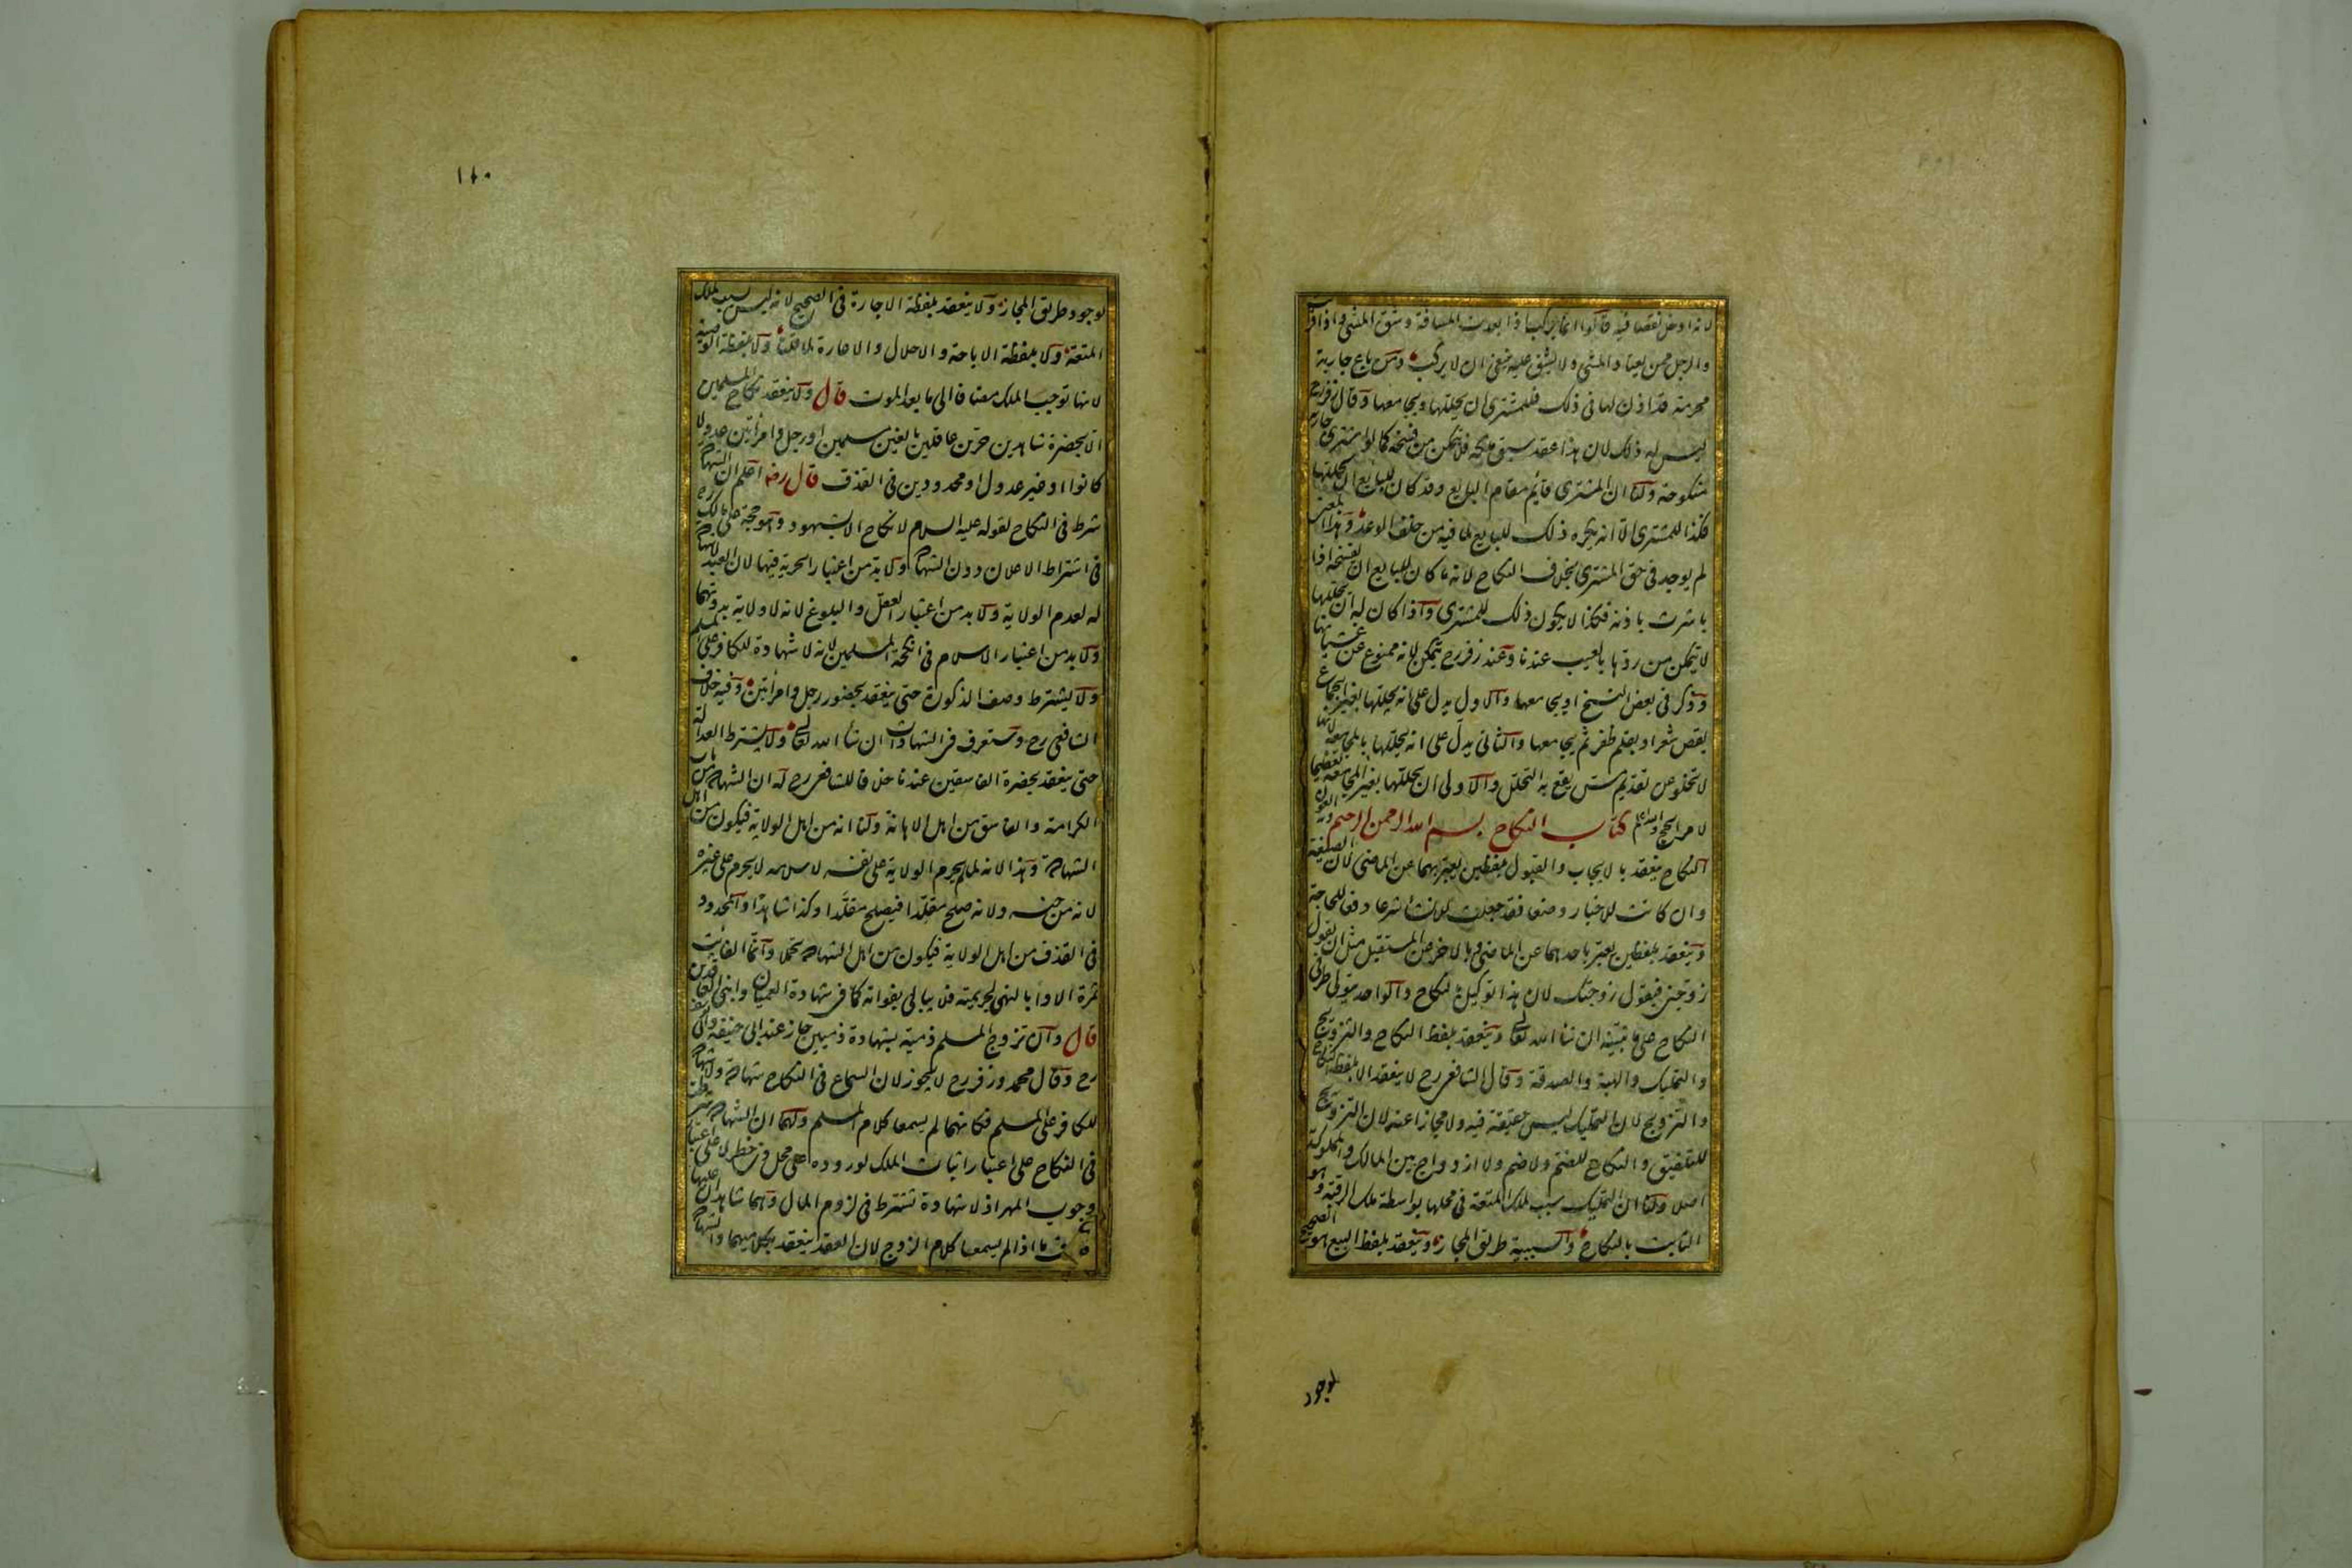 لانه ادخل نقصا فيه قالوا انما يركبها اذا بعدت المسافة وشق المشى واذا قربت
والرجل ممن يعتاد المشى ولا يشق عليه ينبغى ان لا يركب ومن باع جارية
محرمة قد اذن لها فى ذلك فللمشترى ان يحللها ويجامعها وقال زفر رح
ليس له ذلك لان هذا عقد سبق ملكه فلا يتمكن من فسخه كما لو اشترى جارية
منكوحة ولنا ان المشترى قائم مقام البايع وقد كان للبايع ان يحللها
فكذا للمشترى الا انه يكره ذلك للبايع لما فيه من خلف الوعد وهذا المعنى
لم يوجد فى حق المشترى بخلاف النكاح لانه ما كان للبايع ان يفسخه اذا
باشرت باذنه فكذا لا يكون ذلك للمشترى واذا كان له ان يحللها
لا يتمكن من ردها بالعيب عندنا وعند زفر رح يتمكن لانه ممنوع عن غشيانها
وذكر فى بعض النسخ او يجامعها والاول يدل على انه يحللها بغير الجماع
بقص شعر او بقلم ظفر ثم يجامعها والثانى يدل على انه يحللها بالمجامعة لانها
لا تخلو عن تقديم مس يقع به التحلل والاولى ان يحللها بغير المجامعة تعظيما
لامر الحج والله اعلم كتاب النكاح بسم الله الرحمن الرحيم
النكاح ينعقد بالايجاب والقبول بلفظين يعبر بهما عن الماضى لان الصيغة
وان كانت للاخبار وضعا فقد جعلت للانشاء شرعا دفعا للحاجة
وينعقد بلفظين يعبر باحدهما عن الماضى وبالاخر عن المستقبل مثل ان يقول
زوجنى فيقول زوجتك لان هذا توكيل بالنكاح والواحد يتولى طرفى
النكاح على ما نبينه ان شاء الله تعالى وينعقد بلفظ النكاح والتزويج
والتمليك والهبة والصدقة وقال الشافعى رح لا ينعقد الا بلفظة النكاح
والتزويج لان التمليك ليس حقيقة فيه ولا مجازا عنه لان التزويج
للتلفيق والنكاح للضم ولا ضم ولا ازدواج بين المالك والمملوكة
اصلا ولنا ان التمليك سبب لملك المتعة فى محلها بواسطة ملك الرقبة وهو
الثابت بالنكاح والسببية طريق المجاز وينعقد بلفظ البيع هو الصحيح
لوجود
١٤٠
لوجود طريق المجاز ولا ينعقد بلفظة الاجارة فى الصحيح لانه ليس بسبب لملك
المتعة ولا بلفظة الاباحة والاحلال والاعارة لما قلنا ولا بلفظة الوصية
لانها توجب الملك مضافا الى ما بعد الموت قال ولا ينعقد نكاح المسلمين
الا بحضرة شاهدين حرين عاقلين بالغين مسلمين او رجل وامرأتين عدولا
كانوا او غير عدول او محدودين فى القذف قال رضه اعلم ان الشهادة
شرط فى النكاح لقوله عليه السلام لا نكاح الا بشهود وهو حجة على مالك رح
فى اشتراط الاعلان دون الشهادة ولا بد من اعتبار الحرية فيها لان العبد لا شهادة
له لعدم الولاية ولا بد من اعتبار العقل والبلوغ لانه لا ولاية بدونهما
ولا بد من اعتبار الاسلام فى انكحة المسلمين لانه لا شهادة للكافر على المسلم
ولا يشترط وصف الذكورة حتى ينعقد بحضور رجل وامرأتين وفيه خلاف
الشافعى رح وستعرف فى الشهادات ان شاء الله تعالى ولا يشترط العدالة
حتى ينعقد بحضرة الفاسقين عندنا خلافا للشافعى رح له ان الشهادة من باب
الكرامة والفاسق من اهل الاهانة ولنا انه من اهل الولاية فيكون من اهل
الشهادة وهذا لانه لما لم يحرم الولاية على نفسه لاسلامه لا يحرم على غيره
لانه من جنسه ولانه صلح مقلدا فيصلح مقلدا وكذا شاهدا والمحدود
فى القذف من اهل الولاية فيكون من اهل الشهادة تحملا وانما الفائت
ثمرة الاداء بالنهى لجريمته فلا يبالى بفواته كما فى شهادة العميان وابنى العاقدين
قال وان تزوج المسلم ذمية بشهادة ذميين جاز عند ابى حنيفة وابى يوسف
رح وقال محمد وزفر رح لا يجوز لان السماع فى النكاح شهادة ولا شهادة
للكافر على المسلم فكانهما لم يسمعا كلام المسلم ولهما ان الشهادة شرطت
فى النكاح على اعتبار اثبات الملك لوروده على محل ذى خطر لا على اعتبار
وجوب المهر اذ لا شهادة تشترط فى لزوم المال وهما شاهدان عليها
بخلاف ما اذا لم يسمعا كلام الزوج لان العقد ينعقد بكلاميهما والشهادة